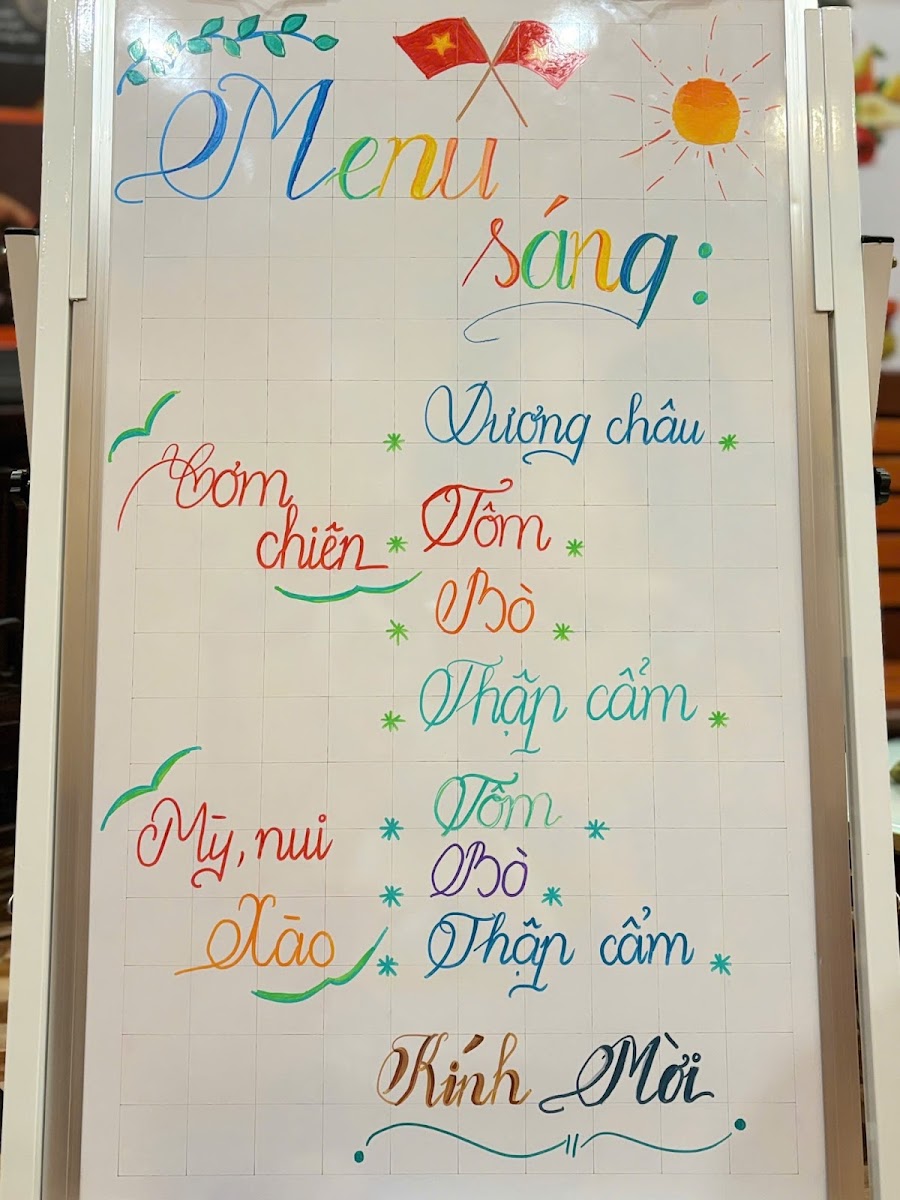 Menu
sáng:
Cơm
chiên
Dương châu
Tôm
Bò
Thập cẩm
Mỳ, nui
Xào
Tôm
Bò
Thập cẩm
Kính Mời